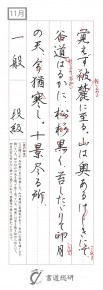 11月
覚えず彼麓に至る。山は奥あるけしきにて
谷道はるかに、松杉黒く、苔したゝりて卯月
の天今猶寒し。十景尽る所、
一般 段級
書道総研